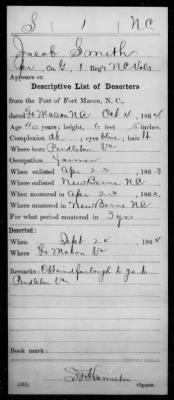 S 1 NC
Jacob Smith
Co. G, 1 Reg't NC Vols
Appears on
Descriptive List of Deserters
from the Post of Fort Macon, N. C.,
dated Ft Macon NC Oct 4, 1864
Age years; height, 6 feet inches;
Complexion dk, eyes blue, hair
Where born Pendleton Va
Occupation Farmer
When enlisted Apr 23, 1863
Where enlisted New Berne NC
When mustered in Apr 23, 186
Where mustered in New Berne NC
For what period mustered in 3 yrs
Deserted:
When Sept 2, 1864
Where Ft Macon
Remarks: Obtained furlough to go to
Pendleton Va
Book mark:
Copyist.